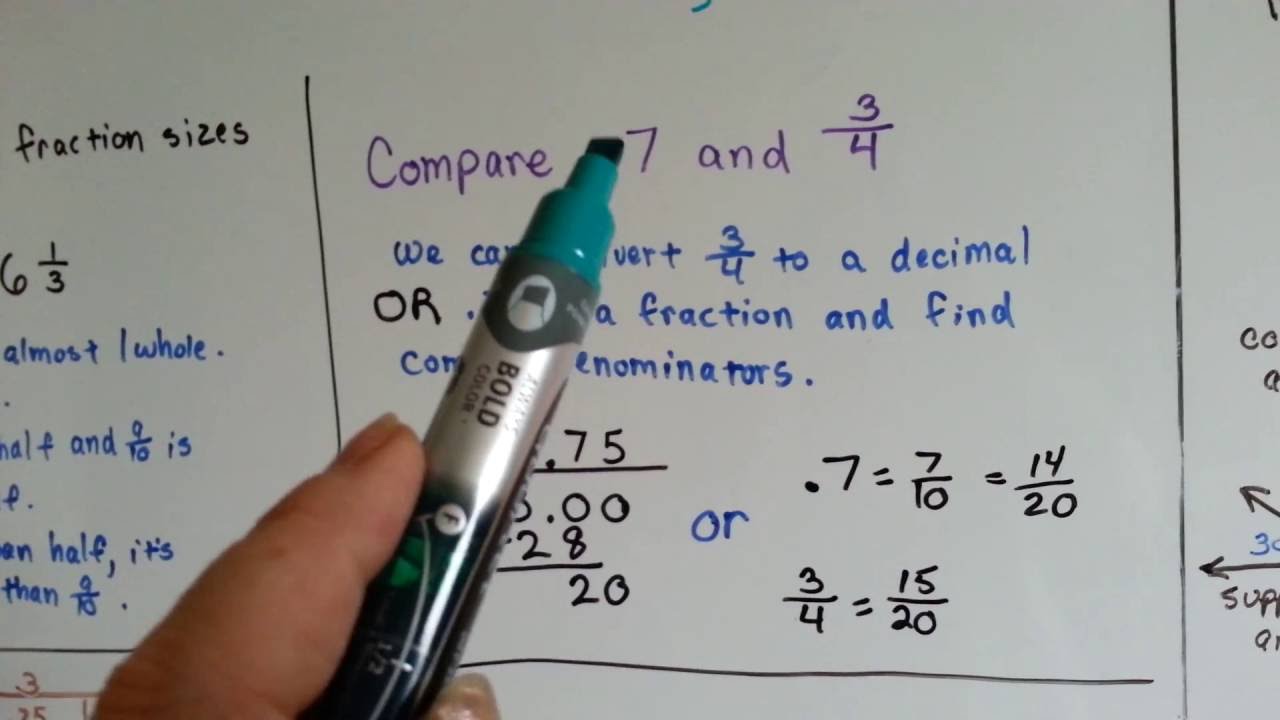 fraction sizes
6 1/3
almost 1 whole.
half and 9/10 is
than half, it's
than 9/10.
3
25
Compare .7 and 3/4
we can vert 3/4 to a decimal
OR . a fraction and find
denominators.
.75
3.00
28
20
or
.7 = 7/10 = 14/20
3/4 = 15/20
BOLD
COLOR